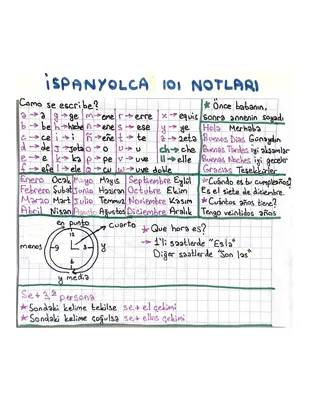 İSPANYOLCA 101 NOTLARI
Como se escribe?
a → a g → ge m → eme r → erre x → equis
b → be h → hache n → ene s → ese y → ye
c → ce i → i ñ → eñe t → te z → zeta
d → de j → jota o → o u → u ch → che
e → e k → ka p → pe v → uve ll → elle
f → efe l → ele q → cu w → uve doble
* Önce babanın,
sonra annenin soyadı
Hola Merhaba
Buenos Dias Günaydın
Buenas Tardes iyi akşamlar
Buenas Noches iyi geceler
Gracias Teşekkürler
Enero Ocak Mayo Mayıs Septiembre Eylül
Febrero Şubat Junio Haziran Octubre Ekim
Marzo Mart Julio Temmuz Noviembre Kasım
Abril Nisan Agosto Ağustos Diciembre Aralık
* Cuándo es tu cumpleaños?
Es el siete de diciembre.
* Cuántos años tiene?
Tengo veintidos años
en punto
cuarto
menos
y
y media
12
3
6
9
* Que hora es?
→ 1'li saatlerde "Es la"
Diğer saatlerde "Son las"
Se + 3ª persona
* Sondaki kelime tekilse se + el çekimi
* Sondaki kelime çoğulsa se + ellos çekimi